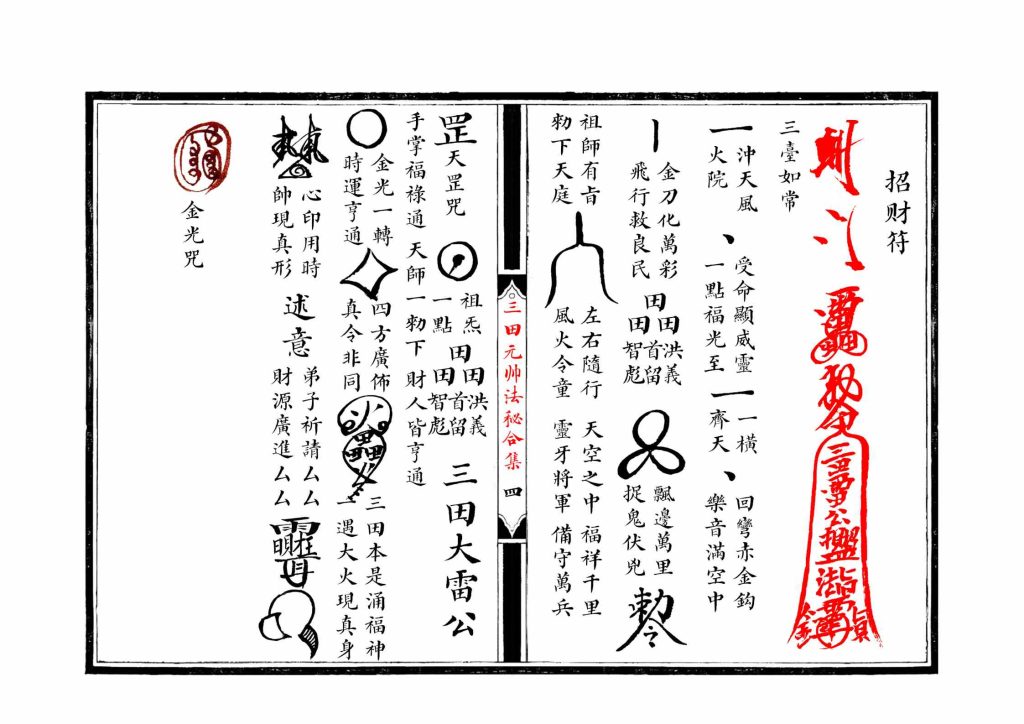 招财符
三臺如常
一
沖天風
火院
丶
受命顯威靈
一點福光至
一
一橫
齊天
丶
回彎赤金鈎
樂音滿空中
丨
金刀化萬彩
飛行救良民
田田洪義
田首留
智彪
飄邊萬里
捉鬼伏兇
勅令
祖師有旨
勑下天庭
左右隨行
風火令童
天空之中
靈牙將軍
福祥千里
備守萬兵
三田元帅法秘合集
四
祖炁
一點
田田洪義
田首留
智彪
三田大雷公
罡
天罡咒
手掌福祿通
天師一勑下
財人皆亨通
金光一轉
時運亨通
四方廣佈
真令非同
三田本是涌福神
一遇大火現真身
心印用時
帥現真形
述意
弟子祈請厶厶
財源廣進厶厶
金光咒